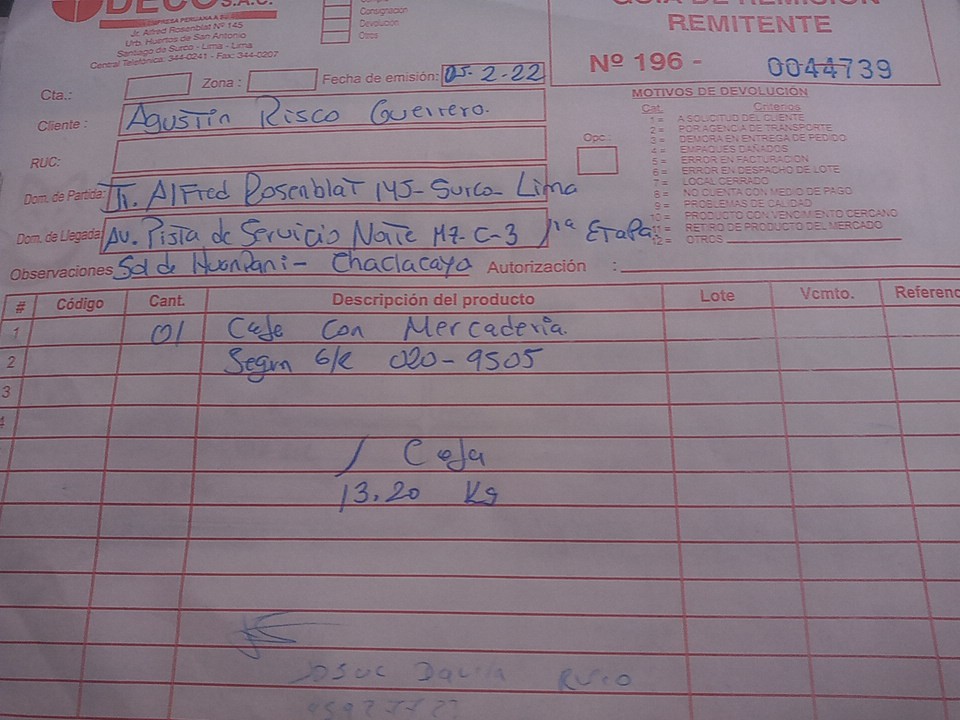 DECO S.A.C.
EMPRESA PERUANA
Jr. Alfred Rosenblat Nº 145
Urb. Huertos de San Antonio
Santiago de Surco - Lima - Lima
Central Telefónica: 344-0241 - Fax: 344-0207
Consignación
Devolución
Otros
GUIA DE REMISIÓN
REMITENTE
Nº 196 - 0044739
Cta.: Zona : Fecha de emisión: 05-2-22
Cliente : Agustín Risco Guerrero.
RUC:
Dom. de Partida: Jr. Alfred Rosenblat 145- Surco- Lima
Dom. de Llegada: Av. Pista de Servicio Norte Mz C-3 1ra Etapa
Observaciones Sol de - Chaclacayo Autorización :
Opc :
MOTIVOS DE DEVOLUCIÓN
Cat. Criterios
1 = A SOLICITUD DEL CLIENTE
2 = POR AGENCIA DE TRANSPORTE
3 = DEMORA EN ENTREGA DE PEDIDO
4 = EMPAQUES DAÑADOS
5 = ERROR EN FACTURACION
6 = ERROR EN DESPACHO DE LOTE
7 = LOCAL CERRADO
8 = NO CUENTA CON MEDIO DE PAGO
9 = PROBLEMAS DE CALIDAD
10 = PRODUCTO CON VENCIMIENTO CERCANO
11 = RETIRO DE PRODUCTO DEL MERCADO
12 = OTROS
# Código Cant. Descripción del producto Lote Vcmto. Referenc
1 01 Caja con Mercadería.
2 Segun G/R 020-9505
3
4
1 Caja
13.20 Kg
Josue Davila